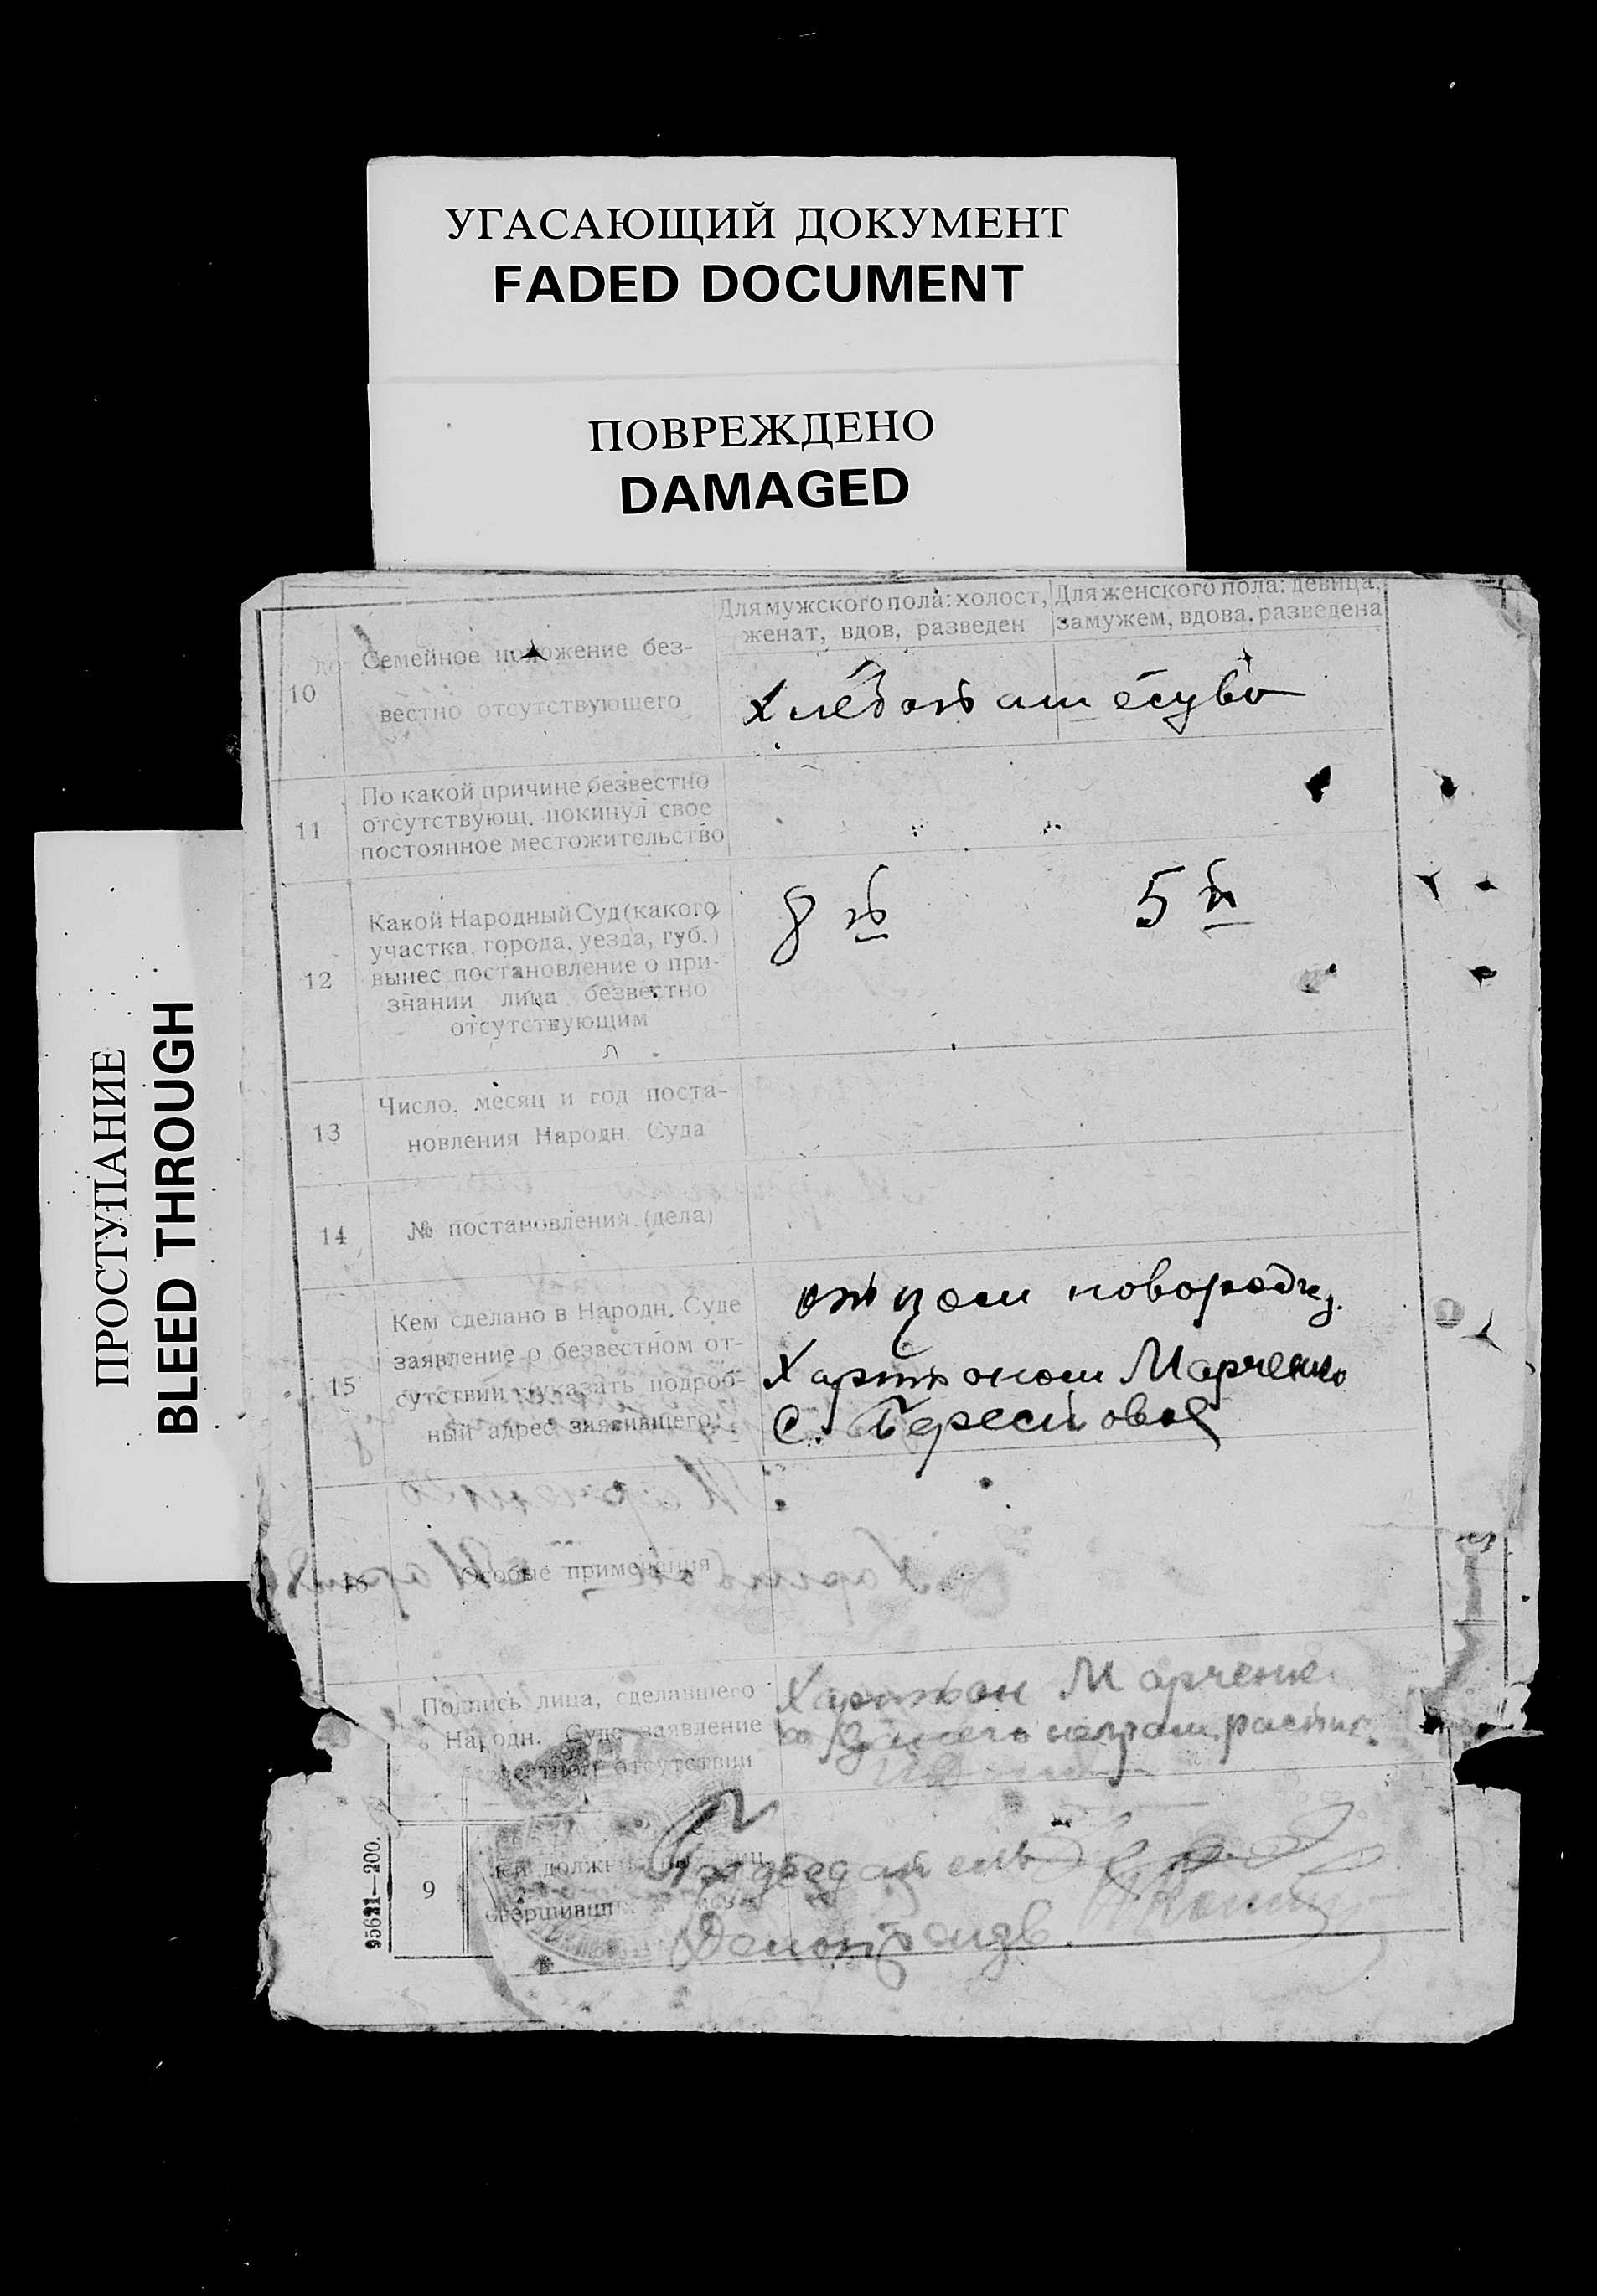 УГАСАЮЩИЙ ДОКУМЕНТ
FADED DOCUMENT
ПОВРЕЖДЕНО
DAMAGED
ПРОСТУПАНИЕ
BLEED THROUGH
Для мужского пола: холост, женат, вдов, разведен
Для женского пола: девица, замужем, вдова, разведена
10
Семейное положение без-
вестно отсутствующего
11
По какой причине безвестно
отсутствующ. покинул свое
постоянное местожительство
12
Какой Народный Суд (какого
участка, города, уезда, губ.)
вынес постановление о при-
знании лица безвестно
отсутствующим
8 й
5 й
13
Число, месяц и год поста-
новления Народн. Суда
14
№ постановления (дела)
15
Кем сделано в Народн. Суде
заявление о безвестном от-
сутствии (указать подроб-
ный адрес заявившего)
отцом новородж.
Харитоном Марченко
С. Берестовое
16
Особые примечания
Подпись лица, сделавшего
в Народн. Суде заявление
отсутствии
Харитон Марченк
неграм. распис.
9
95621—200.